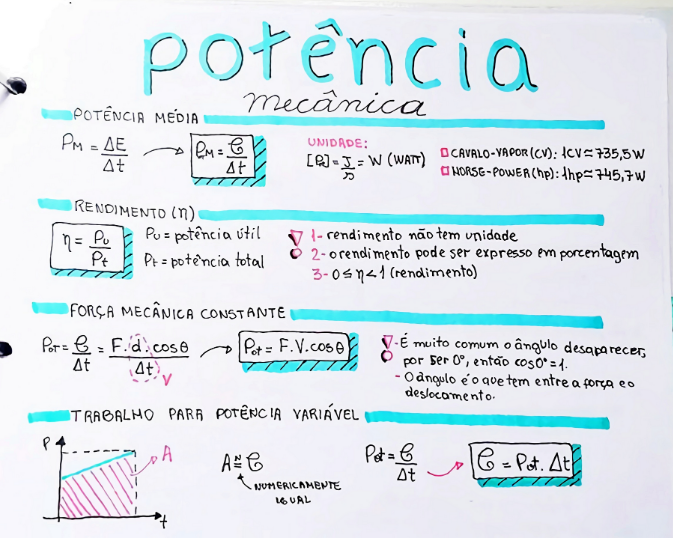 potência
mecânica
POTÊNCIA MÉDIA
Pм = ΔE/Δt → Pм = ℭ/Δt
UNIDADE:
[Pot] = J/s = W (WATT)
CAVALO-VAPOR (CV): 1CV ≃ 735,5W
HORSE-POWER (hp): 1hp ≃ 745,7W
RENDIMENTO (η)
η = Pu/Pt
Pu = potência útil
Pt = potência total
1- rendimento não tem unidade
2- o rendimento pode ser expresso em porcentagem
3- 0 ≤ η < 1 (rendimento)
FORÇA MECÂNICA CONSTANTE
Pot = ℭ/Δt = F.d.cosθ/Δt → Pot = F.V.cosθ
V
- É muito comum o ângulo desaparecer,
por ser 0°, então cos0° = 1.
- O ângulo é o que tem entre a força e o
deslocamento.
TRABALHO PARA POTÊNCIA VARIÁVEL
P
A
t
A ≝ ℭ
NUMERICAMENTE
IGUAL
Pot = ℭ/Δt → ℭ = Pot. Δt